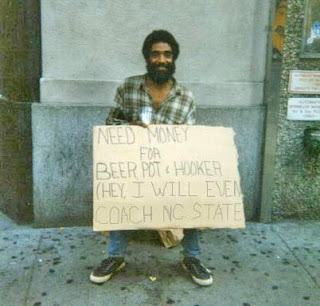 NEED MONEY
FOR
BEER, POT & HOOKER
(HEY, I WILL EVEN
COACH NC STATE